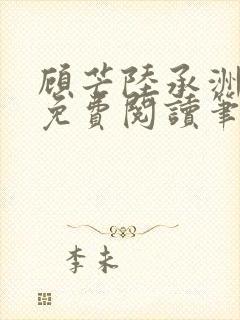 顾芒陸承洲
免費閱讀筆
李未